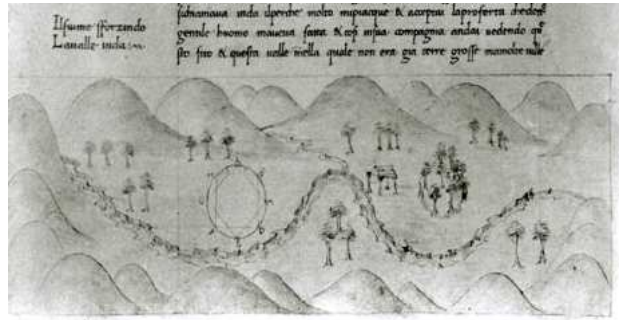 Il fiume sforzindo
La valle inda
si chiamava inda ilperche molto mipiacque & acceptai laproferta
gentile huomo maveva facta & cosi insua compagnia andai vedendo que
sto sito & questa valle inella quale non era gia terre grosse mamolte ville